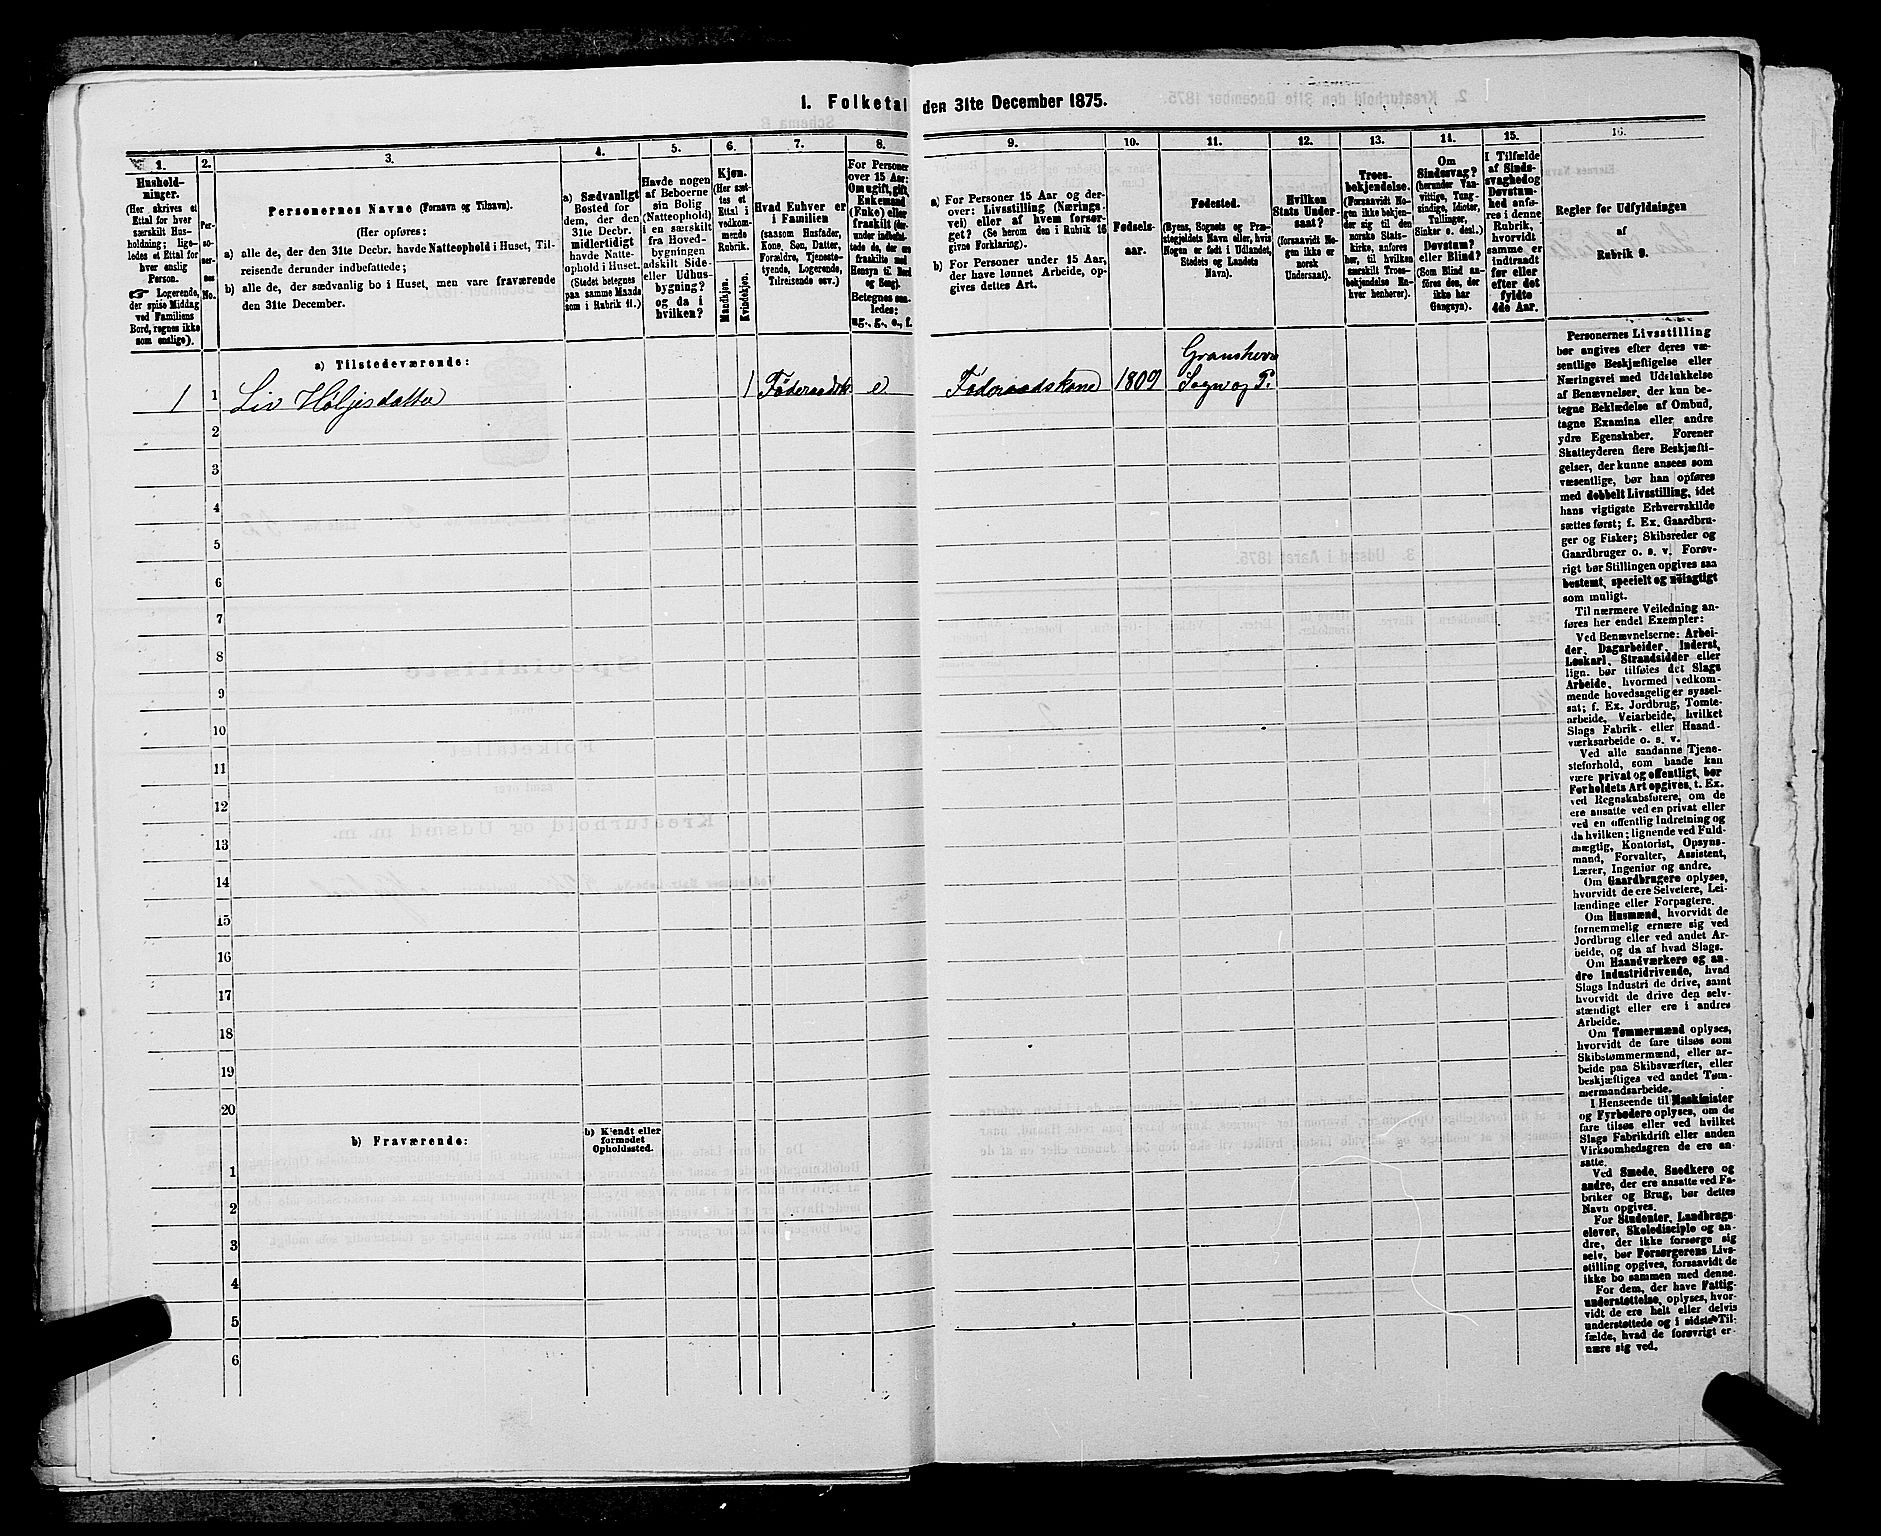 1. Folketal den 31te December 1875.
1.
Hushold-
ninger.
(Her skrives et
Ettal for hver
særskilt Hus-
holdning; lige-
ledes et Ettal for
hver enslig
Person.
Logerende,
der spise Middag
ved Familiens
Bord, regnes ikke
som enslige).
2.
Per-
so-
ner-
nes
No.
3.
Personernes Navne (Fornavn og Tilnavn).
(Her opføres:
a) alle de, der den 31te Decbr. havde Natteophold i Huset, Til-
reisende derunder indbefattede;
b) alle de, der sædvanlig bo i Huset, men vare fraværende
den 31te December.
4.
a) Sædvanligt
Bosted for
dem, der den
31te Decbr.
midlertidigt
havde Natte-
ophold i Huset.
(Stedet betegnes
paa samme Maade
som i Rubrik 11.)
5.
Havde nogen
af Beboerne
sin Bolig
(Natteophold)
i en særskilt
fra Hoved-
bygningen
adskilt Side-
eller Udhus-
bygning?
og da i
hvilken?
6.
Kjøn.
(Her sæt-
tes et
Ettal i
vedkom-
mende
Rubrik.
Mandkjøn.
Kvindekjøn.
7.
Hvad Enhver er
i Familien
(saasom Husfader,
Kone, Søn, Datter,
Forældre, Tjeneste-
tyende, Logerende,
Tilreisende osv.)
8.
For Personer
over 15 Aar:
Om ugift, gift,
Enkemand
(Enke) eller
fraskilt (der-
under indbefat-
tede de, der ere
fraskilte med
Hensyn til Bord
og Seng).
Betegnes saa-
ledes:
ug., g., e., f.
9.
a) For Personer 15 Aar og der-
over: Livsstilling (Nærings-
vei) eller af hvem forsør-
get? (Se herom den i Rubrik 16
givne Forklaring).
b) For Personer under 15 Aar,
der have lønnet Arbeide, op-
gives dettes Art.
10.
Fødsels-
aar.
11.
Fødested.
(Byens, Sognets og Præ-
stegjeldets Navn eller, hvis
Nogen er født i Udlandet,
Stedets og Landets
Navn).
12.
Hvilken
Stats Under-
saat?
(forsaavidt No-
gen ikke er
norsk
Undersaat).
13.
Troes-
bekjendelse.
(Forsaavidt No-
gen ikke bekjen-
der sig til den
norske Stats-
kirke, anføres
her, til hvilken
særskilt Troes-
bekjendelse En-
hver henhører).
14.
Om
Sindssvag?
(herunder Van-
vittige, Tung-
sindige, Idioter,
Tullinger,
Sinker o. desl.)
Døvstum?
eller Blind?
(Som Blind an-
føres den, der
ikke har
Gangsyn).
15.
I Tilfælde
af Sinds-
svaghed og
Døvstum-
hed anfø-
res i denne
Rubrik,
hvorvidt
samme er
indtraadt
før eller
efter det
fyldte
4de Aar.
16.
Regler for Udfyldningen
af
Rubrik 9.
a) Tilstedeværende:
1 1 Liv Holjesdatter 1 Føderaadsk e. Føderaadskone 1809 Gransherr
Sogn og P.
2
3
4
5
6
7
8
9
10
11
12
13
14
15
16
17
18
19
20
b) Fraværende:
b) Kjendt eller
formodet
Opholdssted.
1
2
3
4
5
6
Personernes Livsstilling
bør angives efter deres væ-
sentlige Beskjæftigelse eller
Næringsvei med Udelukkelse
af Benævnelser, der kun be-
tegne Beklædelse af Ombud,
tagne Examina eller andre
ydre Egenskaber. Forener
Skatteyderen flere Beskjæfti-
gelser, der kunne ansees som
væsentlige, bør han opføres
med dobbelt Livsstilling, idet
hans vigtigste Erhvervskilde
sættes først; f. Ex. Gaardbru-
ger og Fisker; Skibsreder og
Gaardbruger o. s. v. Forøv-
rigt bør Stillingen opgives saa
bestemt, specielt og nøiagtigt
som muligt.
Til nærmere Veiledning an-
føres her endel Exempler:
Ved Benævnelserne: Arbei-
der, Dagarbeider, Inderst,
Løskarl, Strandsidder eller
lign. bør tilføies det Slags
Arbeide, hvormed vedkom-
mende hovedsagelig er syssel-
sat; f. Ex. Jordbrug, Tomte-
arbeide, Veiarbeide, hvilket
Slags Fabrik- eller Haand-
værksarbeide o. s. v.
Ved alle saadanne Tjene-
steforhold, som baade kan
være privat og offentligt, bør
Forholdets Art opgives, t. Ex.
ved Regnskabsførere, om de
ere ansatte ved en privat eller
ved en offentlig Indretning og
da hvilken; lignende ved Fuld-
mægtig, Kontorist, Opsyns-
mand, Forvalter, Assistent,
Lærer, Ingeniør og andre.
Om Gaardbrugere oplyses,
hvorvidt de ere Selveiere, Lei-
lændinge eller Forpagtere.
Om Husmænd, hvorvidt de
fornemmelig ernære sig ved
Jordbrug eller ved andet Ar-
beide, og da af hvad Slags.
Om Haandværkere og an-
dre Industridrivende, hvad
Slags Industri de drive, samt
hvorvidt de drive den selv-
stændigt eller ere i andres
Arbeide.
Om Tømmermænd oplyses,
hvorvidt de fare tilsøs som
Skibstømmermænd, eller ar-
beide paa Skibsværfter, eller
beskjæftiges ved andet Tøm-
mermandsarbeide.
I Henseende til Maskinister
og Fyrbødere oplyses, om de
fare tilsøs eller ved hvilket
Slags Fabrikdrift eller anden
Virksomhedsgren de ere an-
satte.
Ved Smede, Snedkere og
andre, der ere ansatte ved Fa-
briker og Brug, bør dettes
Navn opgives.
For Studenter, Landbrugs-
elever, Skoledisciple og an-
dre, der ikke forsørge sig
selv, bør Forsørgerens Livs-
stilling opgives, forsaavidt de
ikke bo sammen med denne.
For dem, der have Fattig-
understøttelse, oplyses, hvor-
vidt de ere helt eller delvis
understøttede og i sidste Til-
fælde, hvad de forøvrigt er-
nære sig ved.